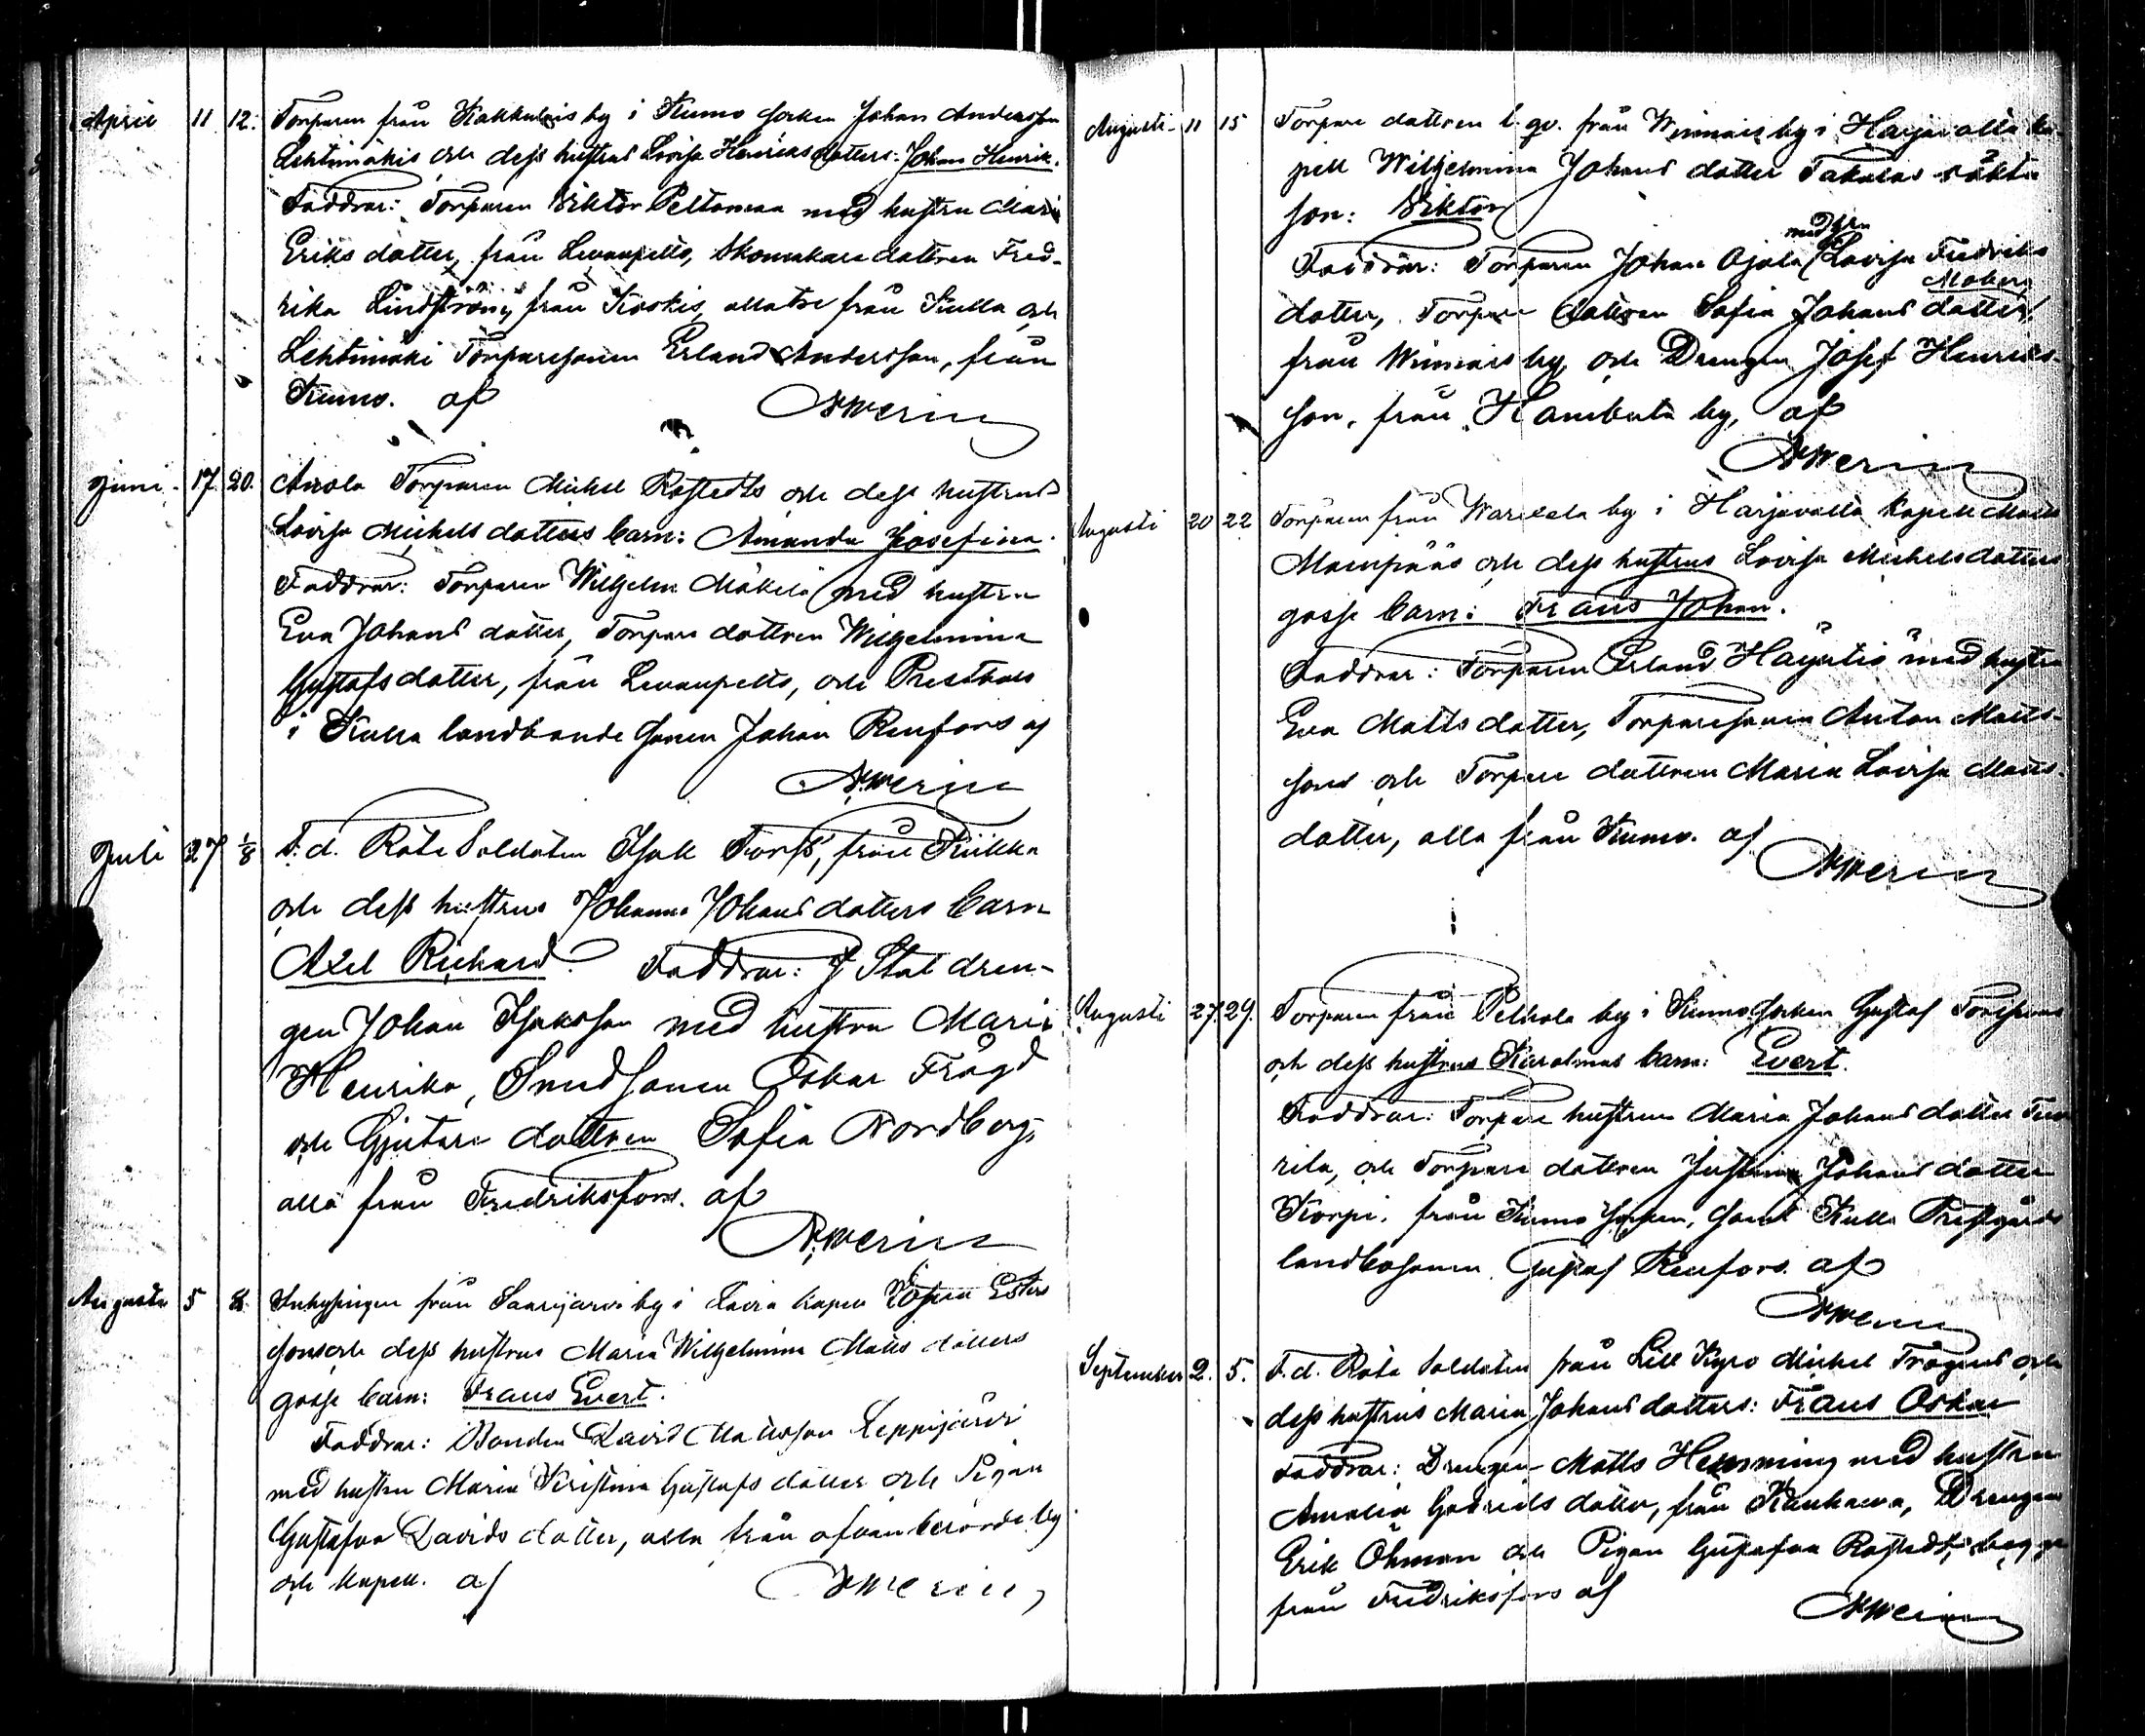 April 11 12. Torparen från Kakkulais by i Kumo socken Johan Andersson
Lehtimäkis och dess hustrus Lovisa Henriksdotters: Johan Henrik.
Faddrar: Torparen Viktor Peltomaa med hustru Maria
Eriks dotter, från Levanpelto, Skomakare dottren Fred-
rika Lindström, från Koskis, alla tre från Kulla och
Lehtimäki Torparesonen Erland Andersson, från
Kumo. af
Juni 17. 20. Anola Torparen Mickel Rostedts och dess hustrus
Lovisa Mickels dotters barn: Amanda Josefina.
Faddrar: Torparen Wilhelm Mäkelä med hustru
Eva Johans dotter, Torpare dottren Wilhelmina
Gustafs dotter, från Levanpelto, och Prestbols
i Kulla landbonde sonen Johan Renfors af
Juli 27 1/8 F. d. Rote Soldaten Isak Fors, från Kiikka
och dess hustrus Johanna Johans dotters barn
Axel Rickard. Faddrar: Staldren-
gen Johan Isaksson med hustru Maria
Henrika, Smedsonen Oskar Frögd
och Gjutare dottren Sofia Nordberg,
alla från Fredriksfors. af
Augusti 5 8. Inhysingen från Saarijärvi by i Lavia kapell
sons och dess hustrus Maria Wilhelmina Matts dotters
gosse barn: Frans Evert.
Faddrar: Bonden David Mattsson Leppijärvi
med hustru Maria Kristina Gustafs dotter och Pigan
Gustafva Davids dotter, alla från ofvanberörde by
och kapell. af
Augusti 11 15 Torpare dottren från by i Harjavalta ka-
pell Wilhelmina Johans dotter Takalas oäkta
son: Viktor
Faddrar: Torparen Johan Ojala med hru Lovisa Fredriks
dotter, Torpare dottren Sofia Johans dotter Moberg
från by och Drengen Josef Henriks-
son, från by, af
Augusti 20 22 Torparen från by i Harjavalta kapell Matts
och dess hustrus Lovisa Mickels dotters
gosse barn: Frans Johan.
Faddrar: Torparen Erland med hustru
Eva Matts dotter, Torparesonen Anton Matts-
sons och Torpare dottren Maria Lovisa Matts-
dotter, alla från Kumo. af
Augusti 27. 29. Torparen från Pelhola by i Kumo socken Gustaf
och dess hustrus Karolinas barn: Evert.
Faddrar: Torpare hustrun Maria Johans dotter
och Torpare dottren Justina Johans dotter
Korpi, från Kumo socken, samt Kulla Prestgårds
landbosonen Gustaf Renfors. af
September 2. 5. F. d. Rote Soldaten från Lill Kyro Mickel Trögens och
dess hustrus Maria Johans dotters: Frans Oskar
Faddrar: Drengen Matts Hemming med hustru
Amalia Gabriels dotter, från Kauhava, Drengen
Erik Öhman och Pigan Gustafva Rostedt, begge
från Fredriksfors af